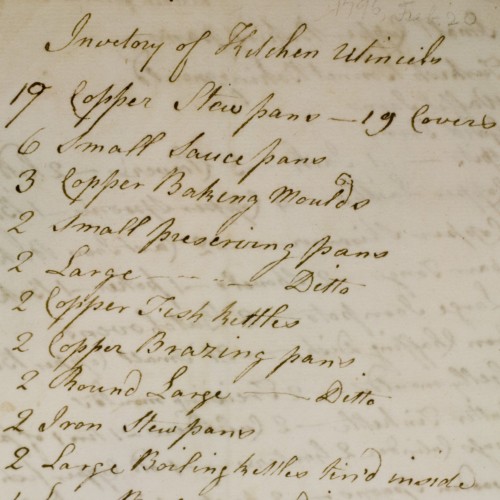 1796 Feb. 20
Invetory of Kitchen Utincils
19 Copper Stew pans — 19 Covers
6 Small Sauce pans
3 Copper Baking Moulds
2 Small preserving pans
2 Large - - - - Ditto
2 Copper Fish kettles
2 Copper Brazing pans
2 Round Large — Ditto
2 Iron Stew pans
2 Large Boiling kettles tin'd inside
1 Large